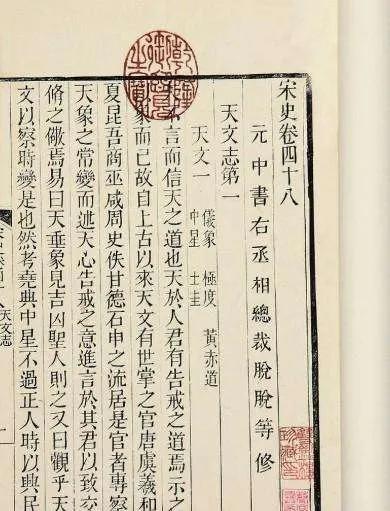 宋史卷四十八
元中書右丞相總裁脫脫等修
天文志第一
天文一 儀象 極度 黃赤道
中星 土圭
不言而信天之道也天於人君有告戒之道焉示之
象而已故自上古以來天文有世掌之官唐虞羲和
夏昆吾商巫咸周史佚甘德石申之流居是官者專察
天象之常變而述天心告戒之意進言於其君以致交
脩之儆焉易曰天垂象見吉凶聖人則之又曰觀乎天
文以察時變是也然考堯典中星不過正人時以興民
天文志